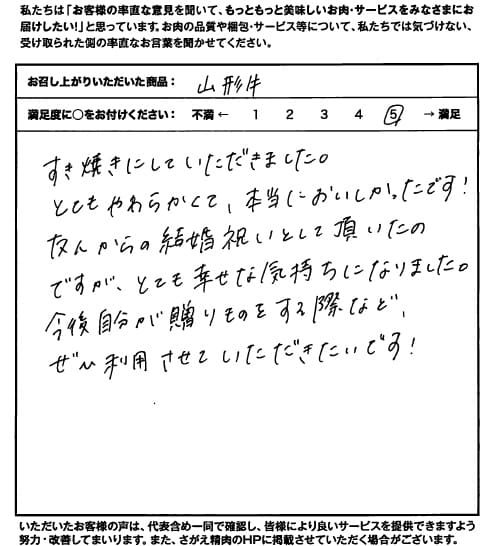 私たちは「お客様の率直な意見を聞いて、もっともっと美味しいお肉・サービスをみなさまにお
届けしたい!」と思っています。お肉の品質や梱包・サービス等について、私たちでは気づけない、
受け取られた側の率直なお言葉を聞かせてください。
お召し上がりいただいた商品： 山形牛
満足度に○をお付けください： 不満 ← 1 2 3 4 5 → 満足
すき焼きにしていただきました。
とてもやわらかくて、本当においしかったです!
友人からの結婚祝いとして頂いたの
ですが、とても幸せな気持ちになりました。
今後自分が贈りものをする際など、
ぜひ利用させていただきたいです!
いただいたお客様の声は、代表含め一同で確認し、皆様により良いサービスを提供できますよう
努力・改善してまいります。また、さがえ精肉のHPに掲載させていただく場合がございます。